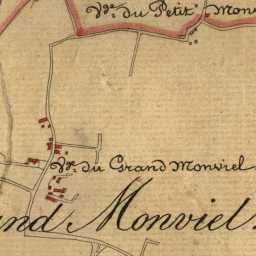 Vge. du Petit Monv
Vge. du Grand Monviel.
and Monviel.